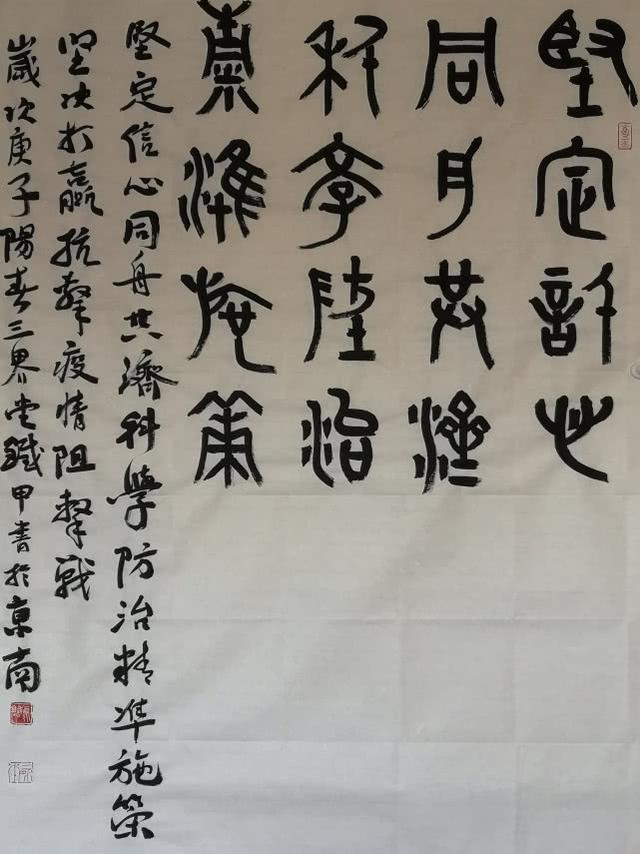 堅定信心
同舟共濟
科學防治
精準施策
堅定信心同舟共濟科學防治精準施策
坚决打贏抗擊疫情阻擊戰
歲次庚子陽春三界堂鐵甲書於京南